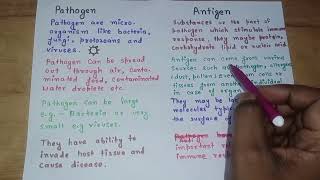 Pathogen
Pathogen are micro-
organism like bacteria,
fungi, protozoans and
viruses.
Pathogen can be spread
out through air, conta-
minated food, contaminated
water droplets etc.
Pathogen can be large
e.g:- Bacteria or very
small e.g viruses.
They have ability to
invade host tissue and
cause disease.
Antigen
Substances or the part of
pathogen which stimulate immune
response, they maybe protein,
carbohydrate lipid or nucleic acid.
Antigen can come from various
sources such as pathogen, allergens
(dust, pollen) even own cells or
tissues from another individual
in case of organ
They may be la
molecules typic
the surface of
Pathogen
Antigen
immune res